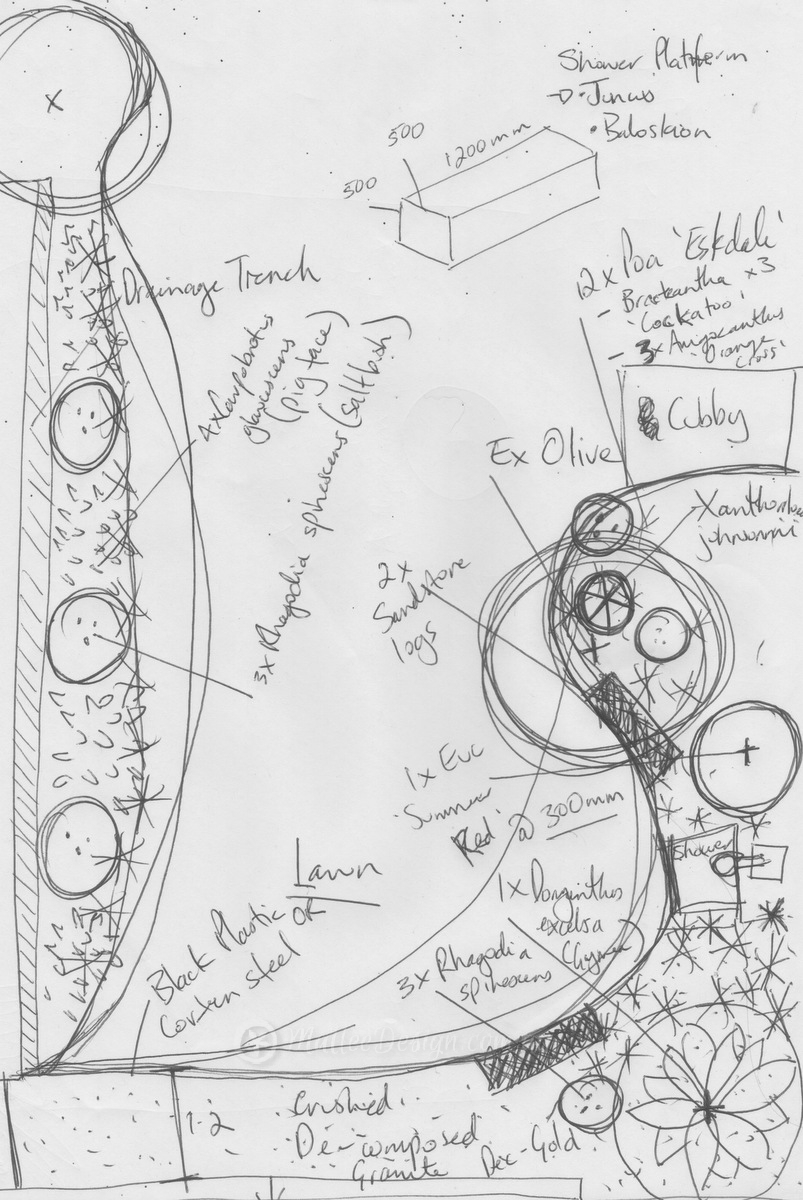 Shower Platform
Juncus
• Baloskion
500
1200mm
500
12x Poa 'Eskdale'
- Bracteantha x3
'Cockatoo'
- 3x Anigozanthus
'Orange
Cross'
Cubby
X
Drainage Trench
4x Carpobrotus
glaucescens
(pig face)
3x Rhagodia spinescens (saltbush)
Ex Olive
Xanthorhoea
johnsonii
2x
Sandstone
logs
1x Euc
'Summer
Red' @ 300mm
Shower
Lawn
1x Doryanthes
excelsa
(Gymea)
3x Rhagodia
spinescens
Black Plastic
OR
Corten steel
MalleeDesign.com
1.2
crushed
De-composed
Granite Dec-Gold